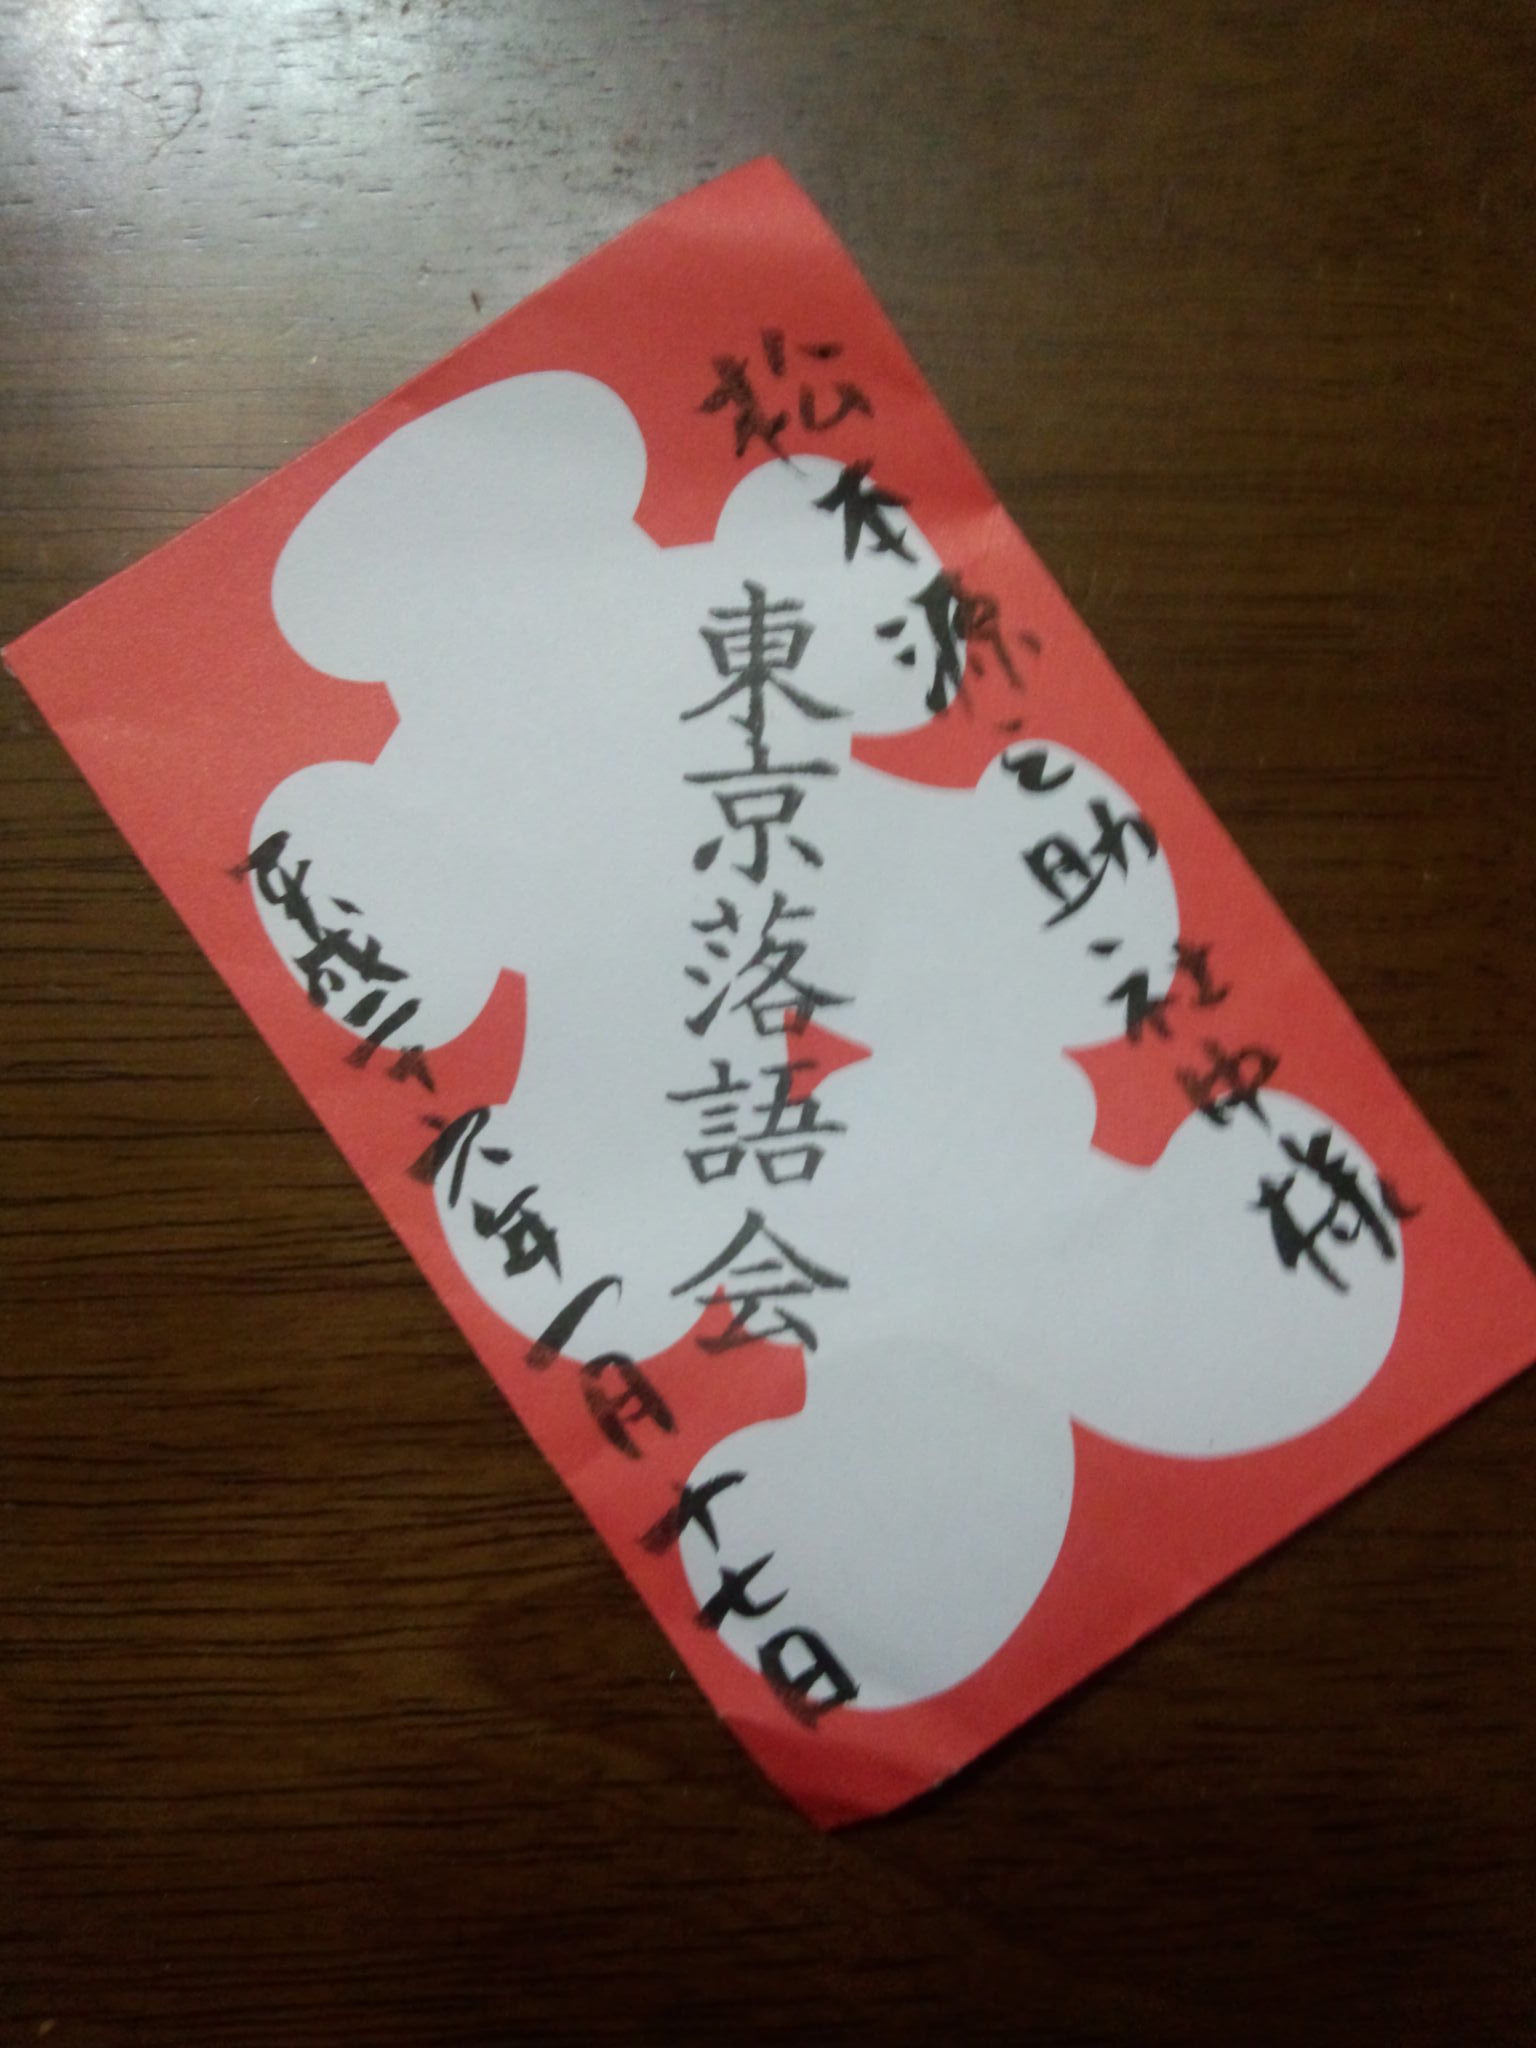 松本源之助社中様
東京落語会
平成二十六年一月十七日